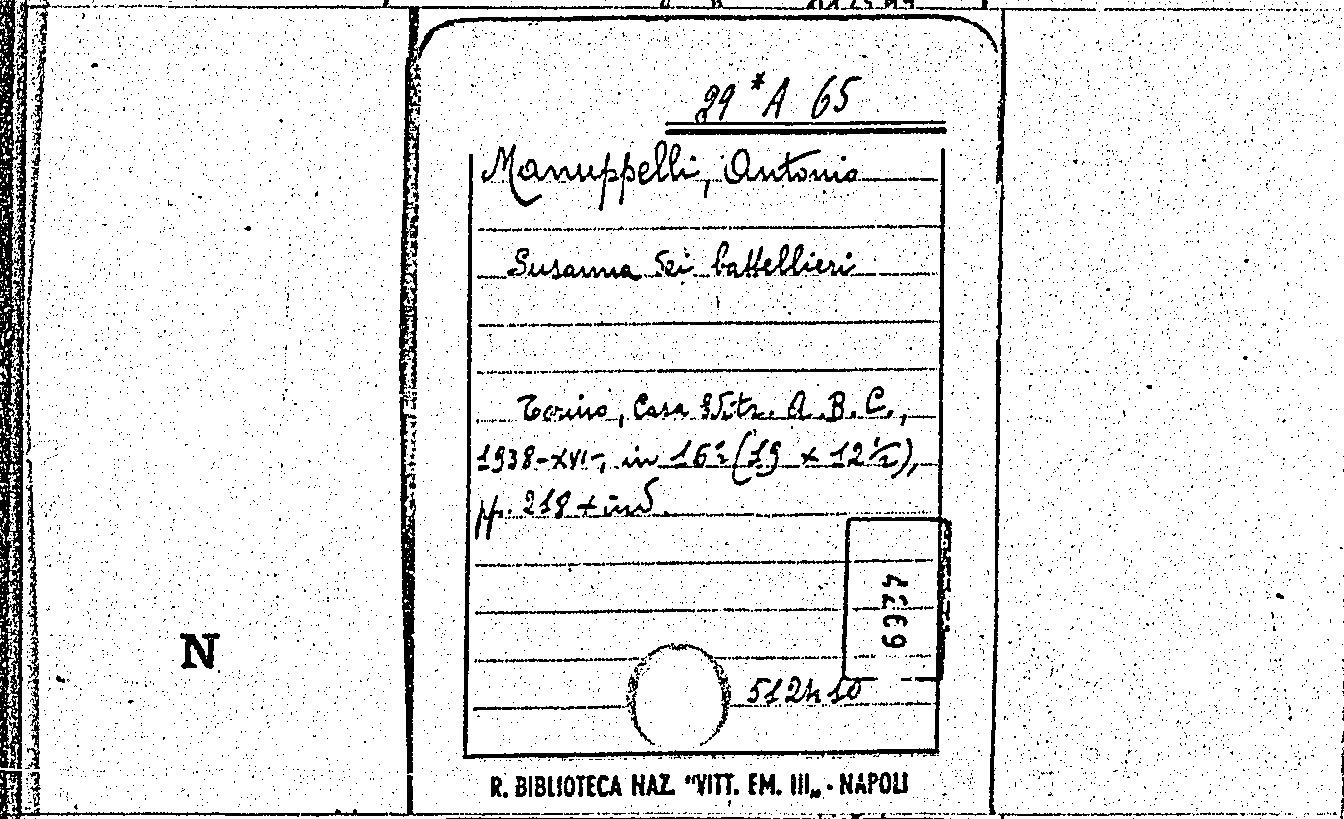 29 * A 65
Manuppelli, Antonio
Susanna dei battellieri
Torino, Casa Editr. A. B. C.,
1938-XVI-, in 16° (19 x 12½),
pp. 218 + ind.
42369
512410
N
R. BIBLIOTECA NAZ. "VITT. EM. III„ - NAPOLI